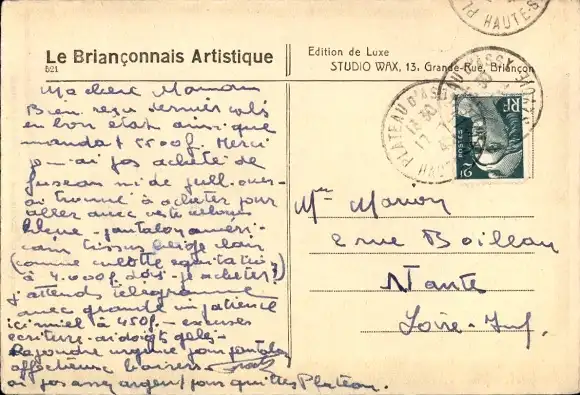 Le Briançonnais Artistique
521
Edition de Luxe
STUDIO WAX, 13. Grande-Rue, Briançon
Ma chère Maman
Bien reçu dernier colis
en bon état ainsi que
mandat 5500f. Merci
je n'ai pas acheté de
fuseau ni de pull-over
ai trouvé à acheter pour
aller avec veste
bleue - pantalon améri-
cain tissus beige clair
(comme culotte equitation)
à 4.000f dois-je acheter?
j'attends télégramme
avec grande impatience
ici miel à 450f. - excuses
écriture - ai doigts gelés -
Répondre urgence pour pantalon
affectueux baisers
ai pas assez argent pour quitter Plateau.
Me Marion
2 rue Boileau
Nante
Loire-Inf.
PLATEAU D'ASSY
HAUTE-S
RF
POSTES
2F